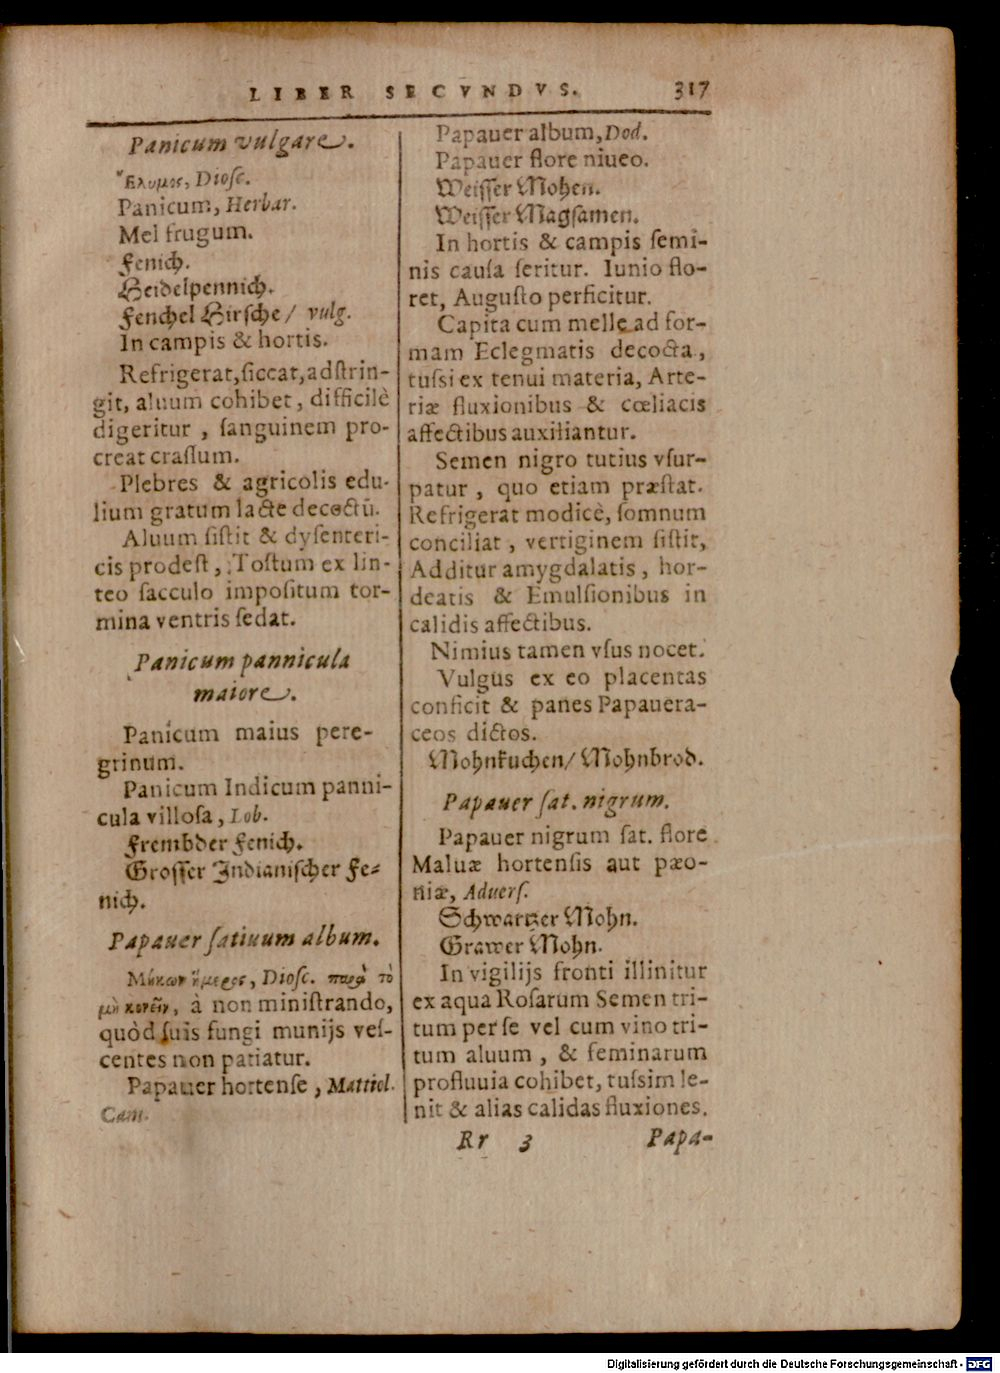 LIBER SECVNDVS. 317
Panicum vulgare.
Ἔλυμος, Diosc.
Panicum, Herbar.
Mel frugum.
Fenich.
Heidelpennich.
Fenchel Hirsche / vulg.
In campis & hortis.
Refrigerat, ſiccat, adſtrin-
git, aluum cohibet, difficilè
digeritur, ſanguinem pro-
creat craſſum.
Plebres & agricolis edu-
lium gratum lacte decoctū.
Aluum ſiſtit & dyſenteri-
cis prodeſt, Toſtum ex lin-
teo ſacculo impoſitum tor-
mina ventris ſedat.
Panicum pannicula
maiore.
Panicum maius pere-
grinum.
Panicum Indicum panni-
cula villoſa, Lob.
Frembder Fenich.
Grosser Indianischer Fe-
nich.
Papauer ſatiuum album.
Μήκων ἥμερος, Dioſc. παρὰ τὸ
μὴ κονεῖν, à non miniſtrando,
quòd ſuis fungi munijs veſ-
centes non patiatur.
Papauer hortenſe, Mattiol.
Cam.
Papauer album, Dod.
Papauer flore niueo.
Weisser Mohen.
Weisser Magsamen.
In hortis & campis ſemi-
nis cauſa ſeritur. Iunio flo-
ret, Auguſto perficitur.
Capita cum melle ad for-
mam Eclegmatis decocta,
tuſsi ex tenui materia, Arte-
riæ fluxionibus & cœliacis
affectibus auxiliantur.
Semen nigro tutius vſur-
patur, quo etiam præſtat.
Refrigerat modicè, ſomnum
conciliat, vertiginem ſiſtit,
Additur amygdalatis, hor-
deatis & Emulſionibus in
calidis affectibus.
Nimius tamen vſus nocet.
Vulgus ex eo placentas
conficit & panes Papauera-
ceos dictos.
Mohnkuchen / Mohnbrod.
Papauer ſat. nigrum.
Papauer nigrum ſat. flore
Maluæ hortenſis aut pæo-
niæ, Aduerſ.
Schwartzer Mohn.
Grawer Mohn.
In vigilijs fronti illinitur
ex aqua Roſarum Semen tri-
tum per ſe vel cum vino tri-
tum aluum, & feminarum
profluuia cohibet, tuſsim le-
nit & alias calidas fluxiones.
Rr 3 Papa-
Digitalisierung gefördert durch die Deutsche Forschungsgemeinschaft - DFG